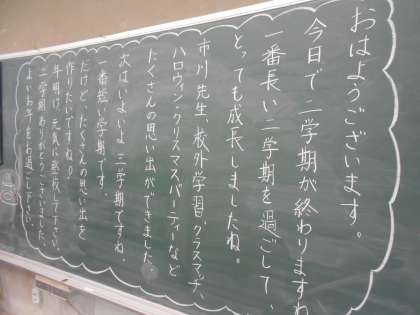 おはようございます。
今日で二学期が終わりますね
一番長い二学期を過ごして、
とっても成長しましたね。
市川先生、校外学習、クラスマッチ、
ハロウィン・クリスマスパーティーなど
たくさんの思い出ができました
次はいよいよ三学期ですね。
一番短い学期です。
だけど、たくさんの思い出を
作りたいですね。
年明け、元気に登校して下さい。
二学期ありがとうございました。
よいお年をお過ごし下さい。